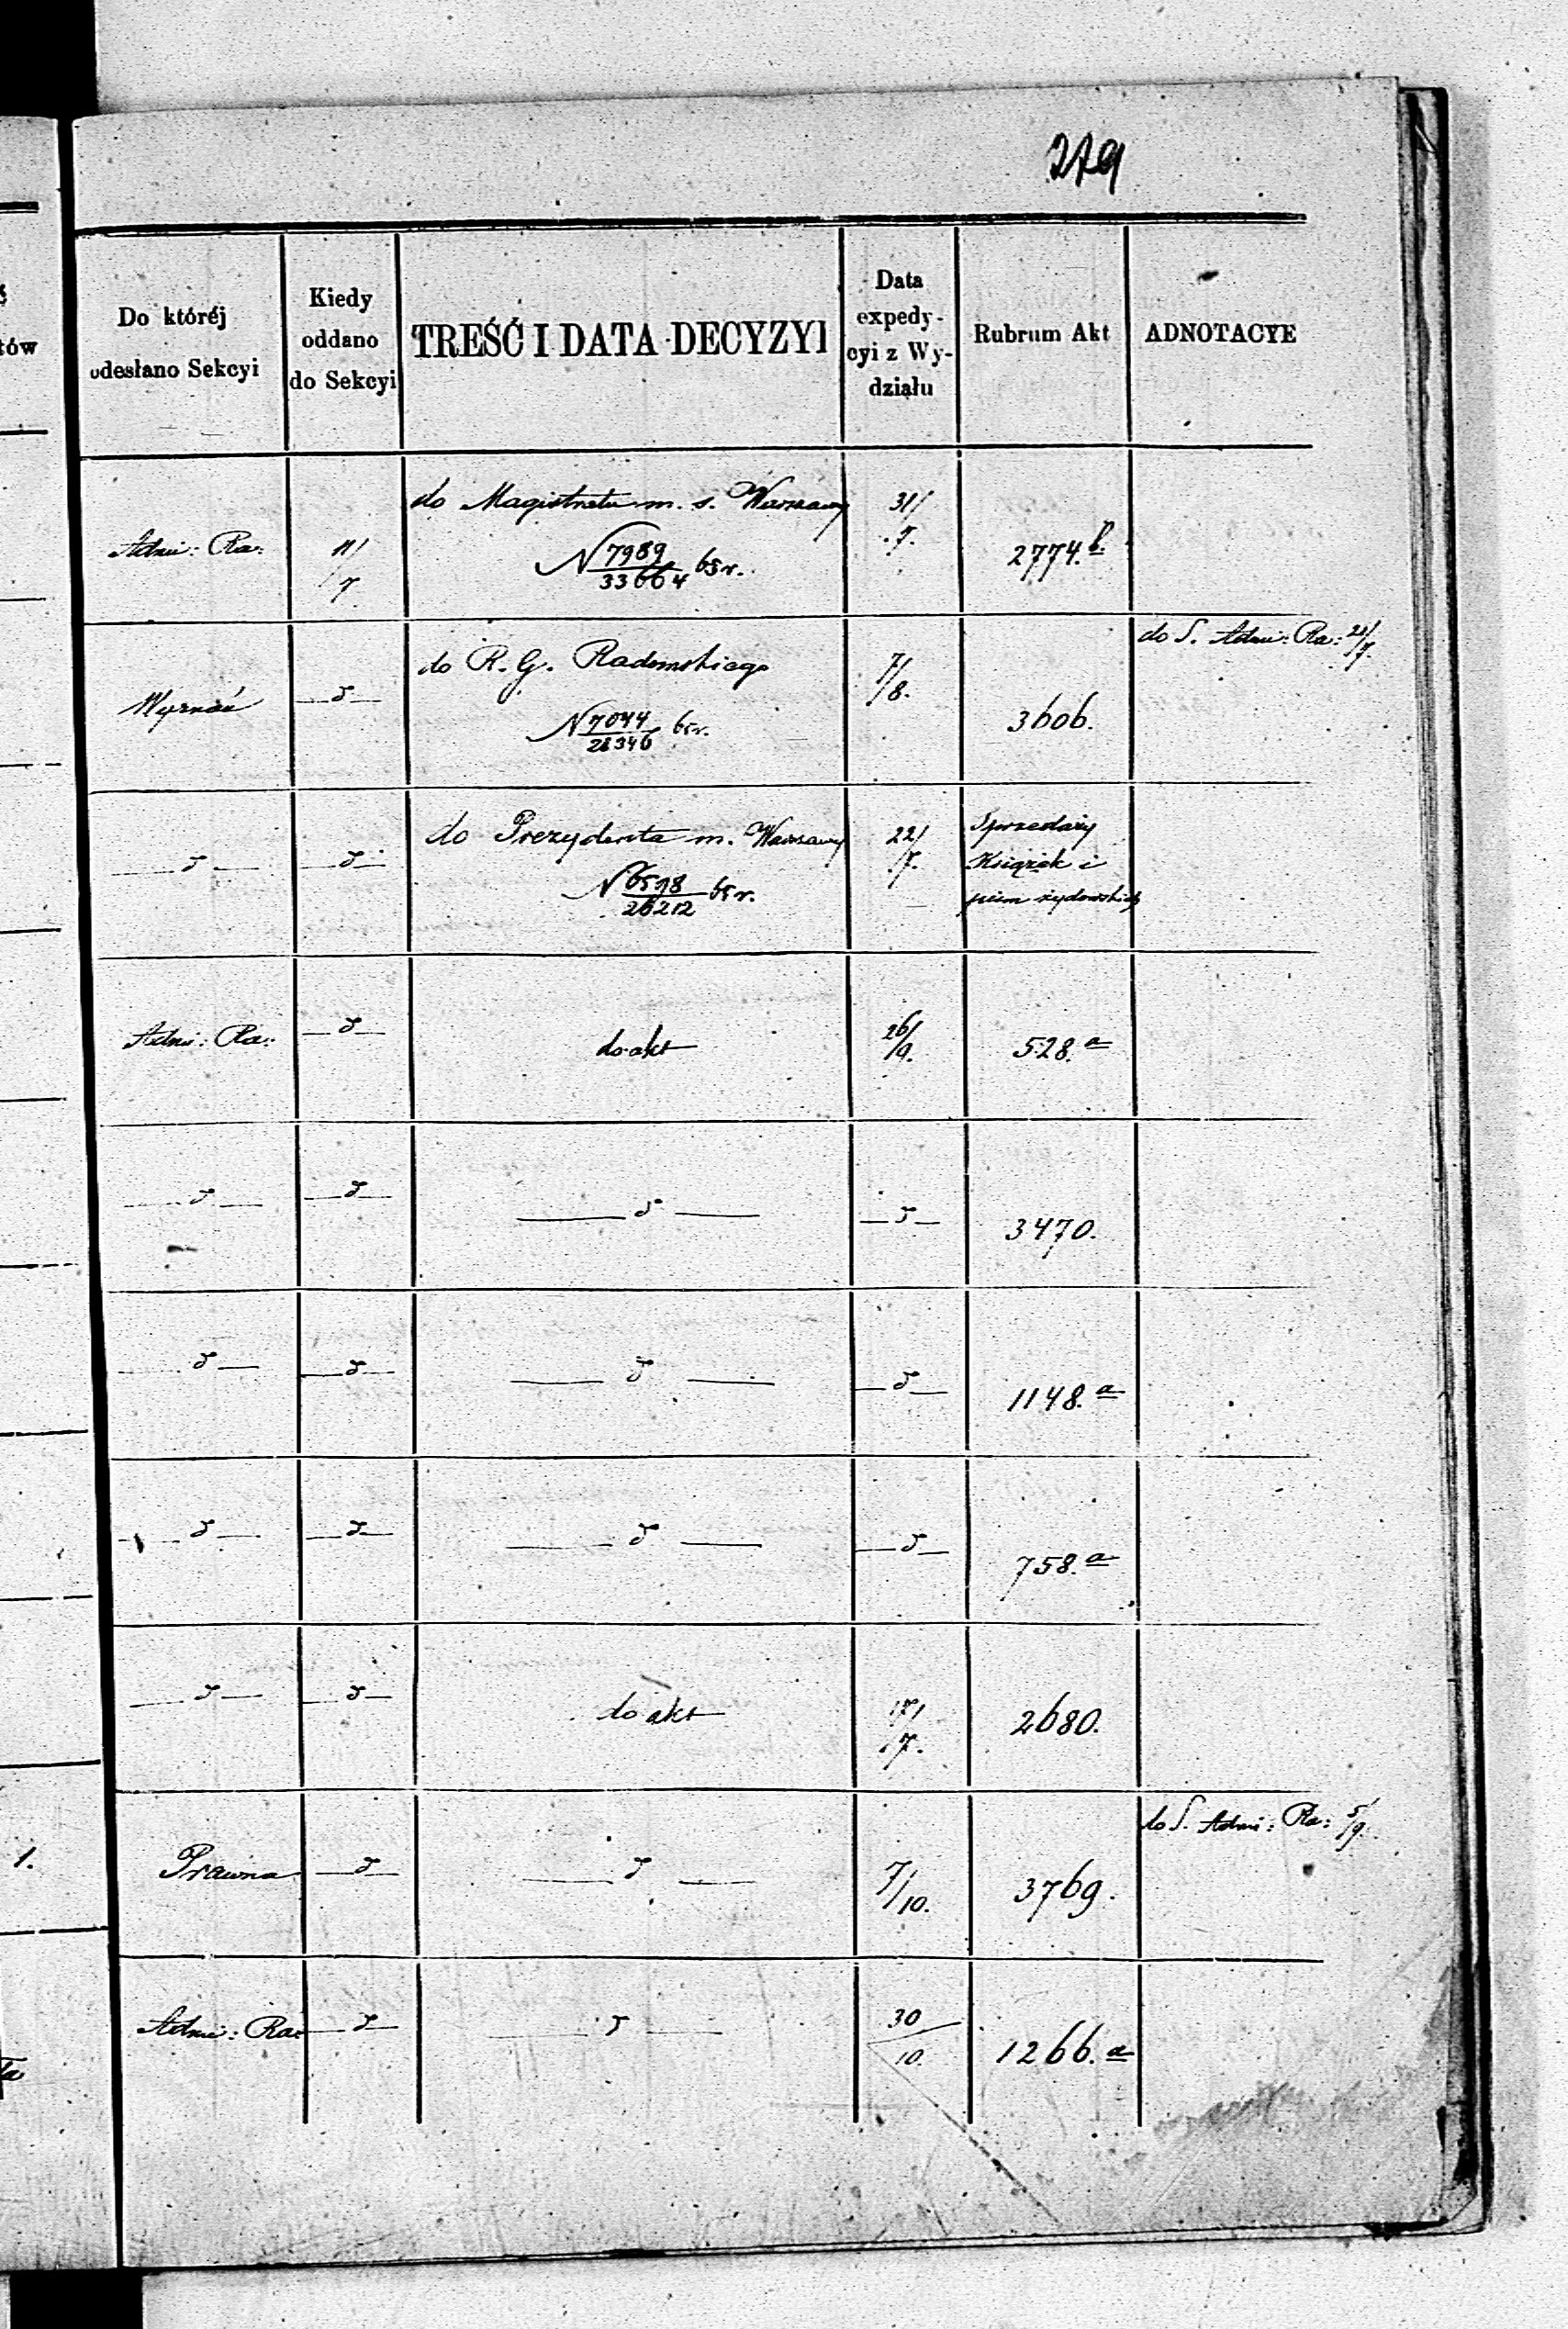 279
Do któréj
odesłano Sekcyi
Kiedy
oddano
do Sekcyi
TREŚĆ I DATA DECYZYI
Data
expedy-
cyi z Wy-
działu
Rubrum Akt
ADNOTACYE
tów
Admi: Ra:
11/7
do Magistratu m. s. Warszawy
N 7989/33664 65 r.
31/7.
2774. b.
Wyznań
— d —
do R. G. Radomskiego
N 7044/28346 65 r.
7/8.
3606.
do S. Admi: Ra: 21/7.
— d —
— d —
do Prezydenta m. Warszawy
N 6598/26212 65 r.
22/7.
Sprzedaży
Książek i
pism żydowskich
Admi: Ra:
— d —
do akt
26/9.
528. a
— d —
— d —
— d —
— d —
3470.
— d —
— d —
— d —
— d —
1148. a
— d —
— d —
— d —
— d —
758. a
— d —
— d —
do akt
17/7.
2680.
1.
Prawna
— d —
— d —
7/10.
3769.
do S. Admi: Ra: 5/9.
Admi: Ra:
— d —
— d —
30/10.
1266. a